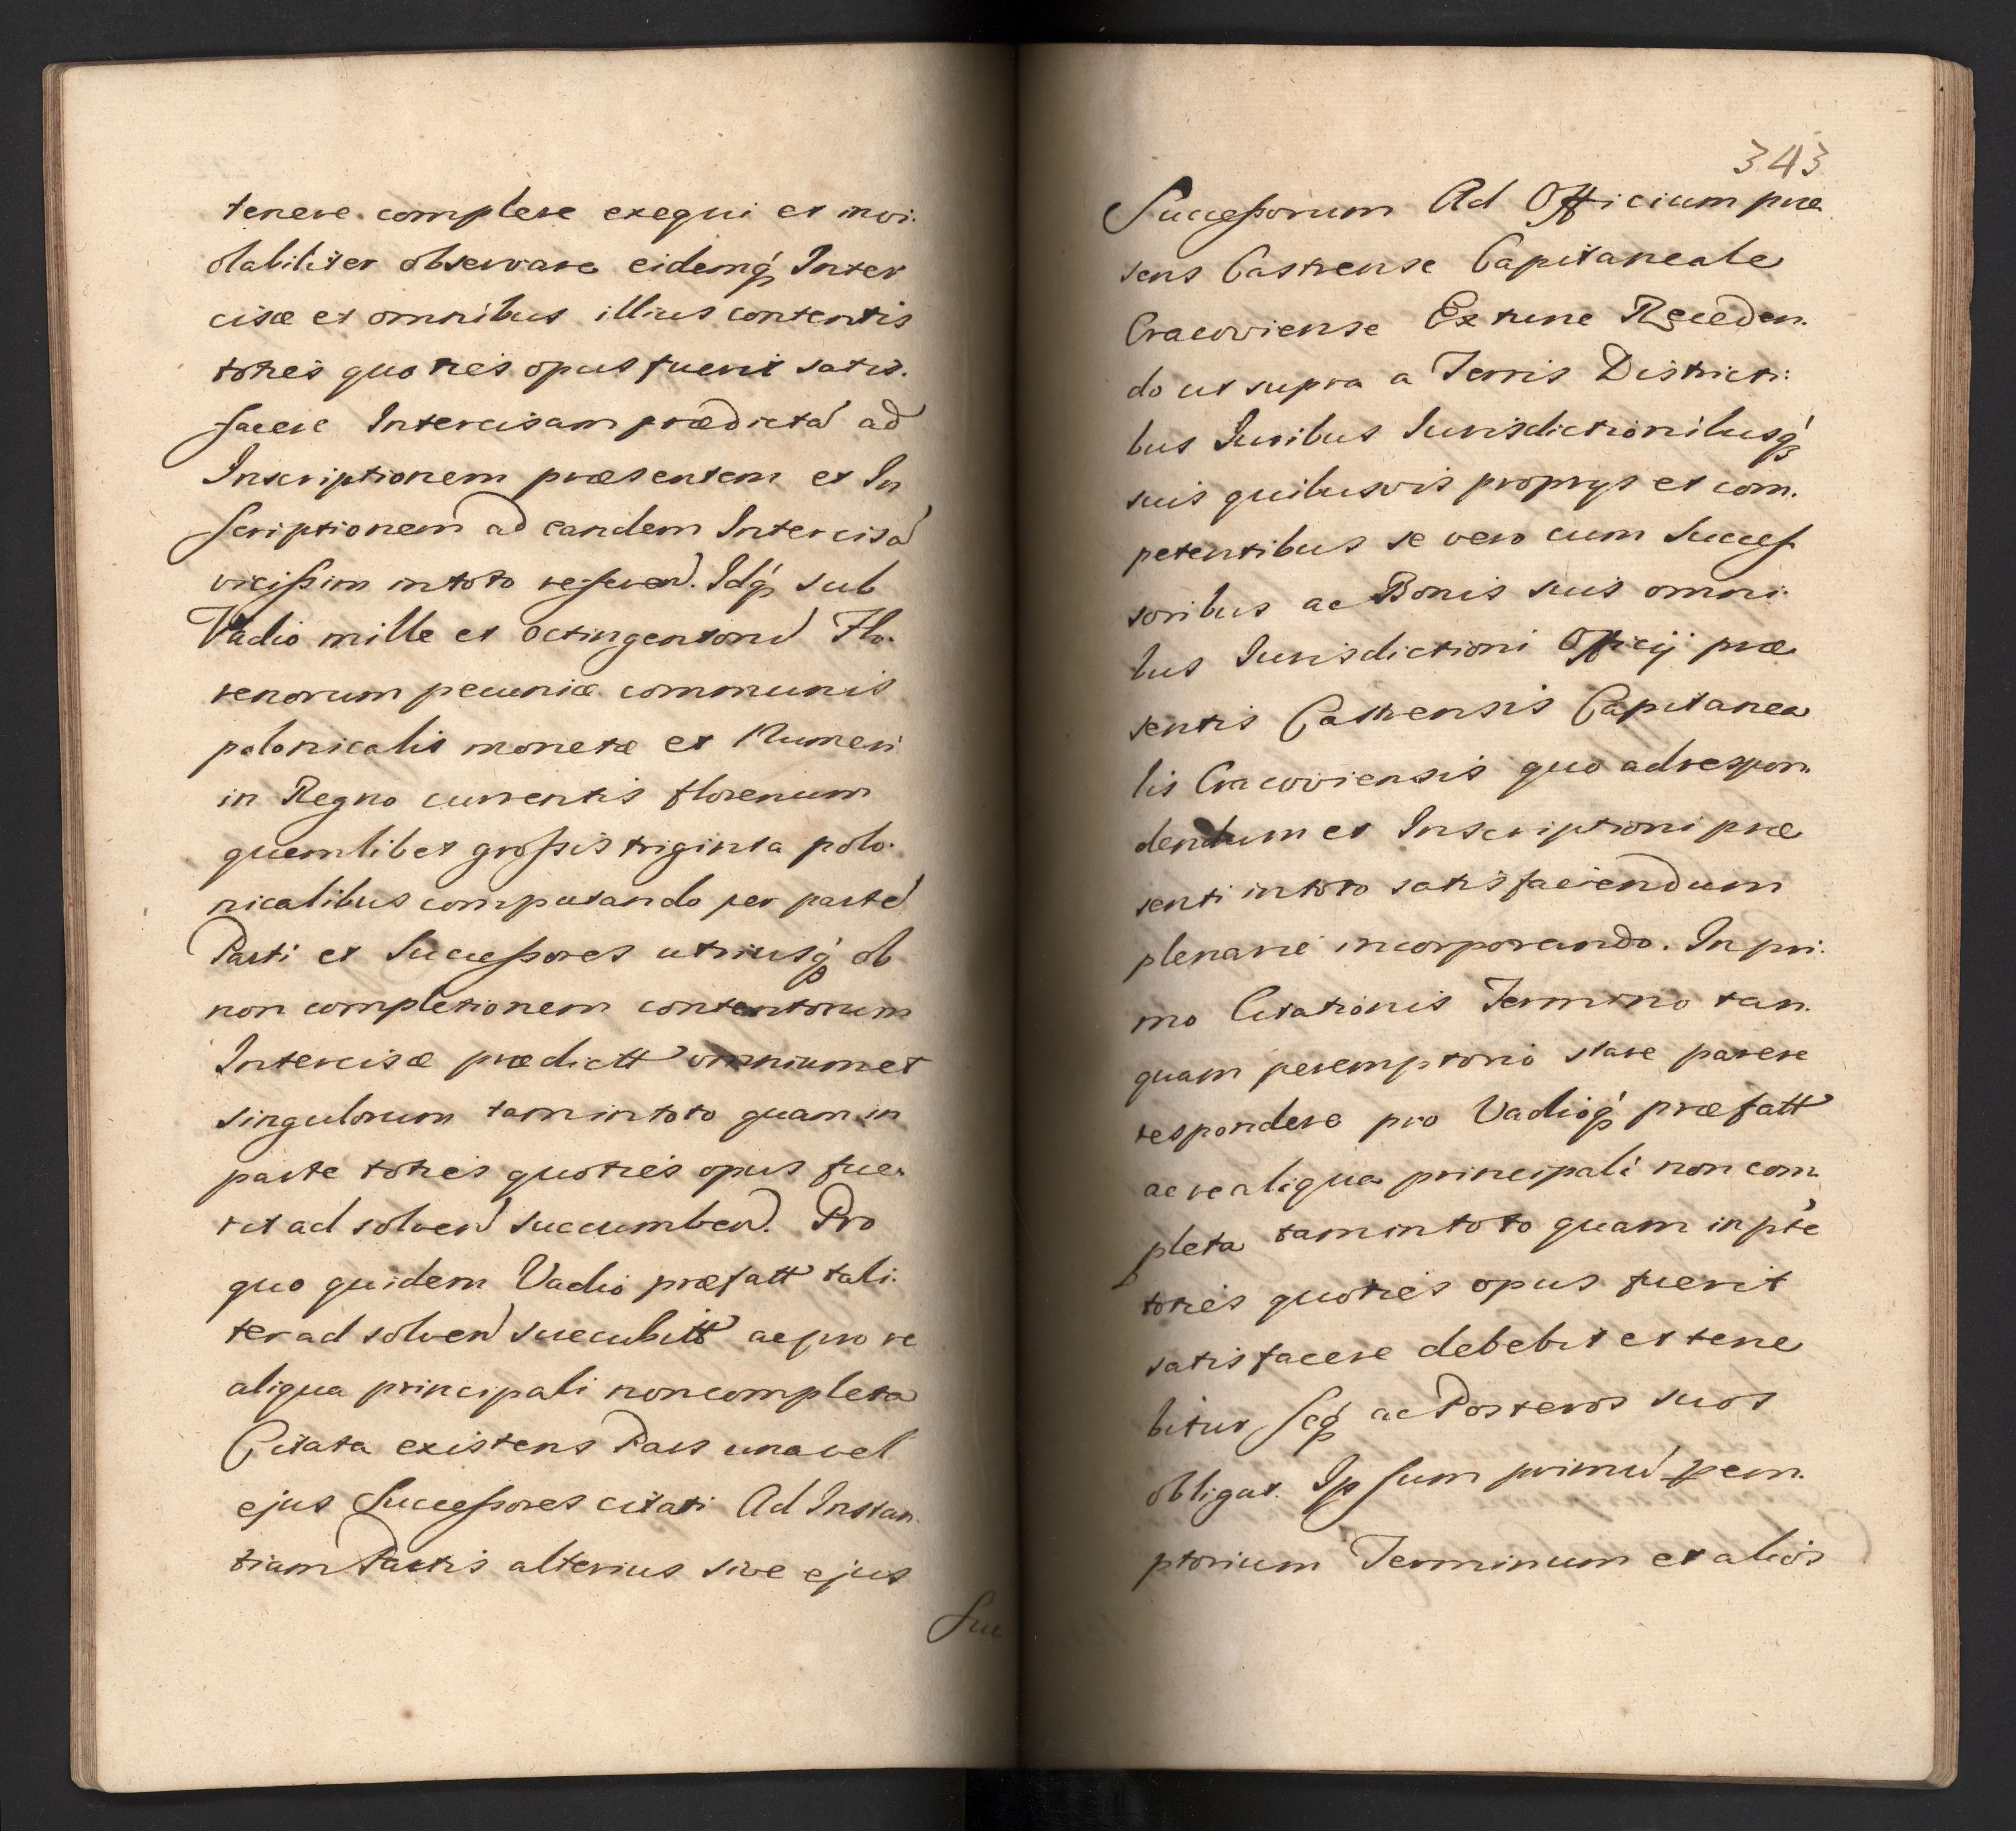 tenere complere exequi et invi.
olabiliter observare eidemq́ꝫ Inter
cisæ et omnibus illius contentis
toties quoties opus fuerit satis.
facere Intercisam prædictá ad
Inscriptionem præsentem et In
scriptionem ad eandem Intercisá
vicißim intoto referen̄. Idq́ꝫ sub
Vadio mille et octingenton̄ Flo.
renorum pecuniæ communis
polonicalis monetæ et Numeri
in Regno currentis florenum
quemlibet großis triginta polo.
nicalibus computando per parté
Parti et Succeßores utriusq́ꝫ ob
non completionem contentorum
Intercisæ prædictt omnium et
singulorum tam intoto quam in
parte toties quoties opus fue.
rit ad solven̄ succumben̄. Pro
quo quidem Vadio præfatt tali.
ter ad solven̄ succubitt ac pro re
aliqua principali non completa
Citata existens Pars una vel
ejus Succeßores citati Ad Instan.
tiam Partis alterius sive ejus
Suc
343
Succeßorum Ad Officium præ
sens Castrense Capitaneale
Cracoviense Ex tunc Receden.
do ut supra a Terris Districti:
bus Juribus Jurisdictionibusq́ꝫ
suis quibusvis proprys et com.
petentibus se vero cum Succeß
soribus ac Bonis suis omni.
bus Jurisdictioni Officij præ
sentis Castrensis Capitanea
lis Cracoviensis quo ad respon.
dendum et Inscriptioni præ
senti intoto satisfaciendum
plenarié incorporando. In pri.
mo Citationis Termino tan.
quam peremptorio stare parere
respondere pro Vadioq́ꝫ præfatt
ac re aliqua principali non com
pleta tam intoto quam in pté
toties quoties opus fuerit
satisfacere debebit et tene
bitur Seq́ꝫ ac Posteros suos
obligat. Ip sum primú pem.
ptorium Terminum et alios